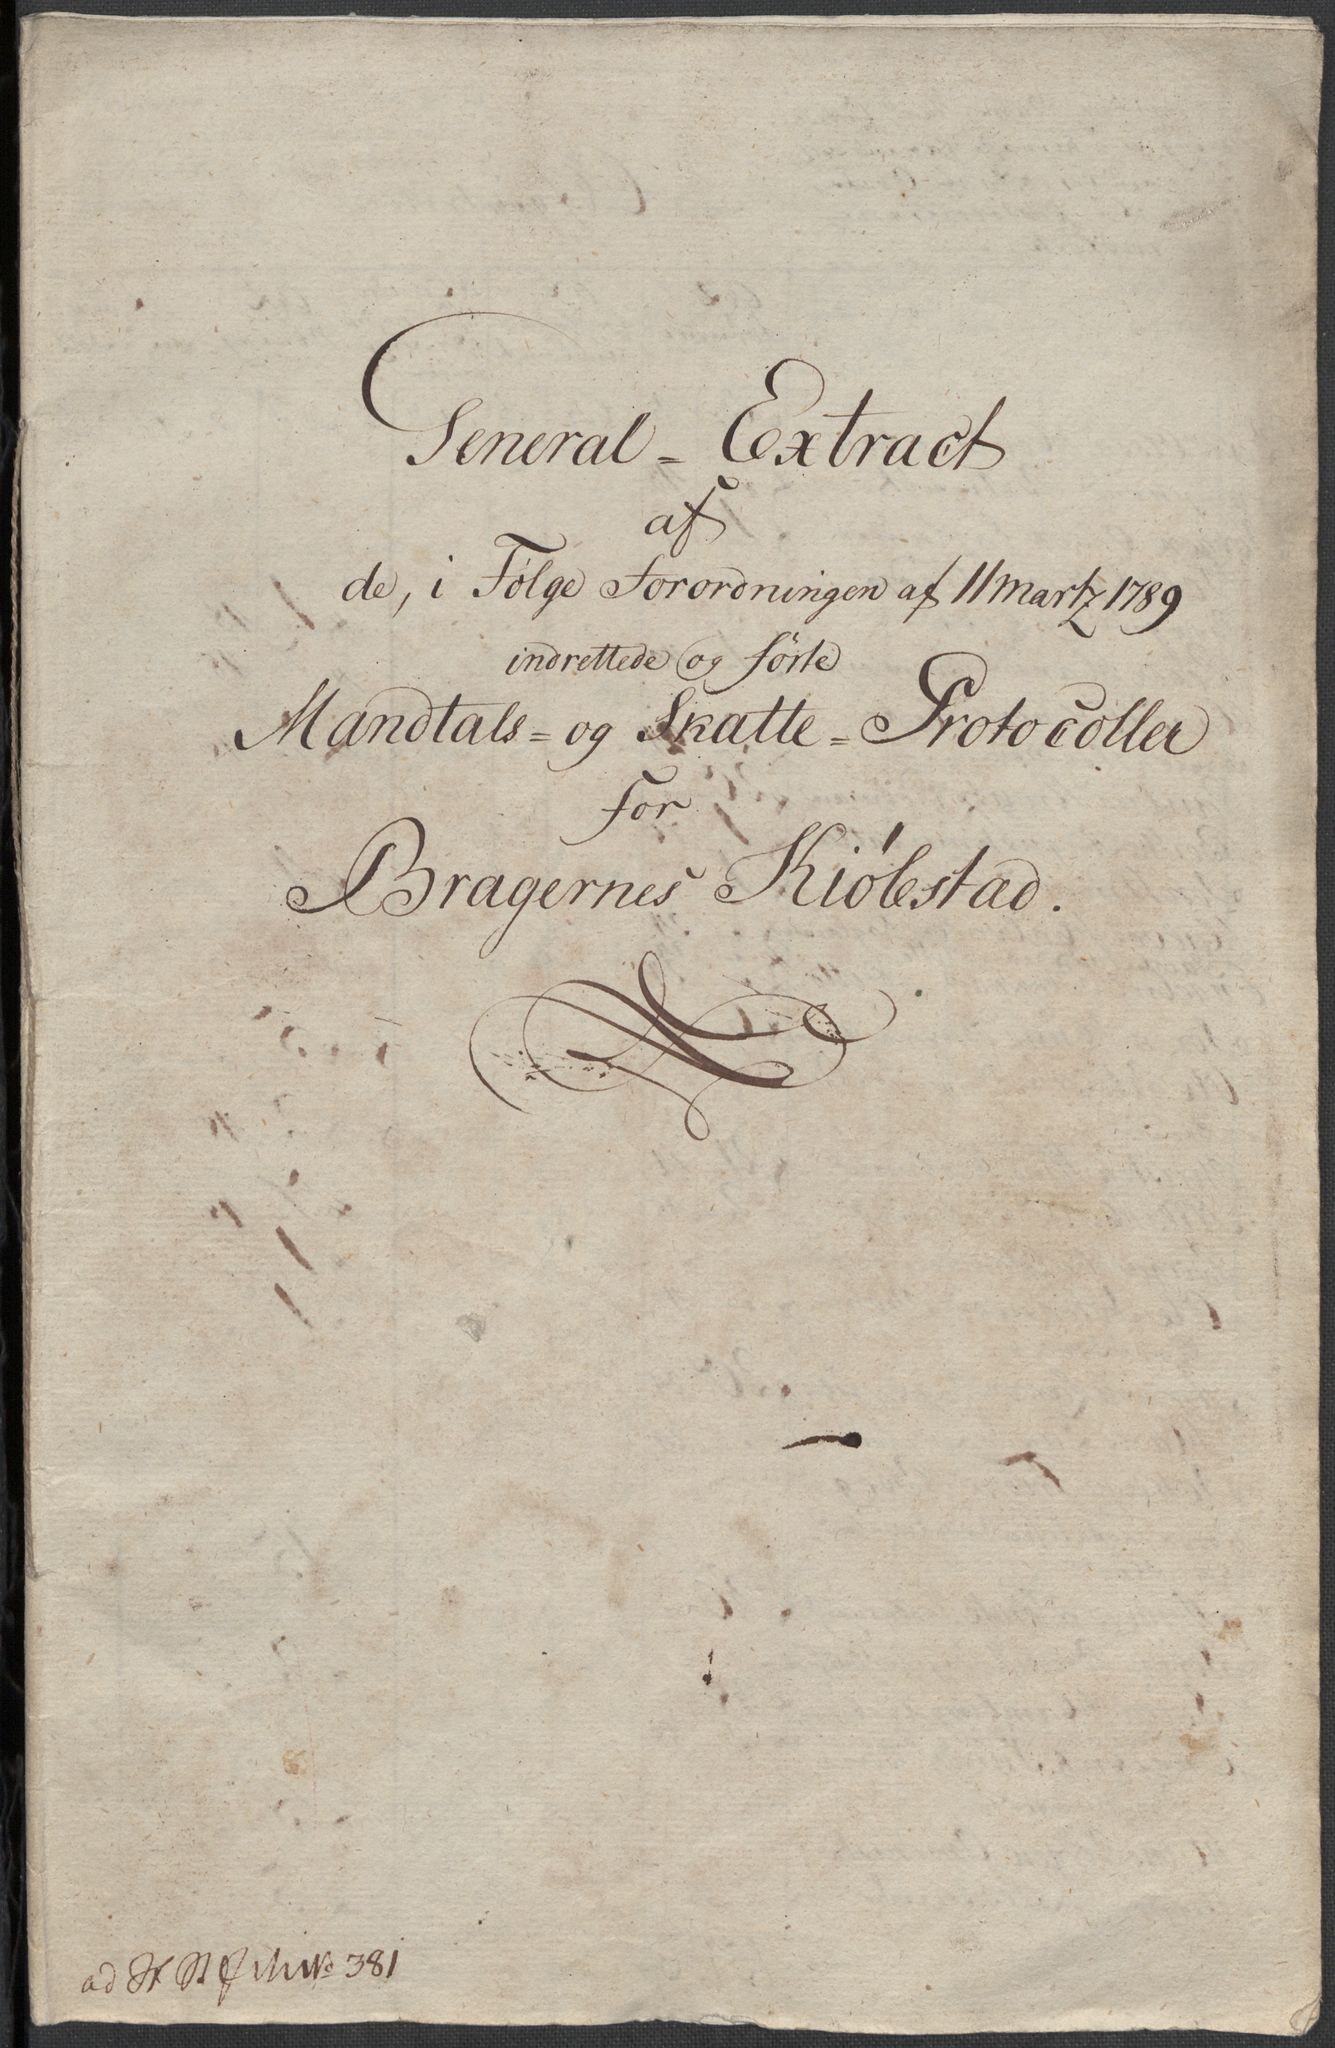 General = Extract
af
de, i Følge Forordningen af 11 Martz 1789
indrettede og førte
Mandtals = og Skatte = Protocoller
for
Bragernes Kiøbstad.
ad No 381